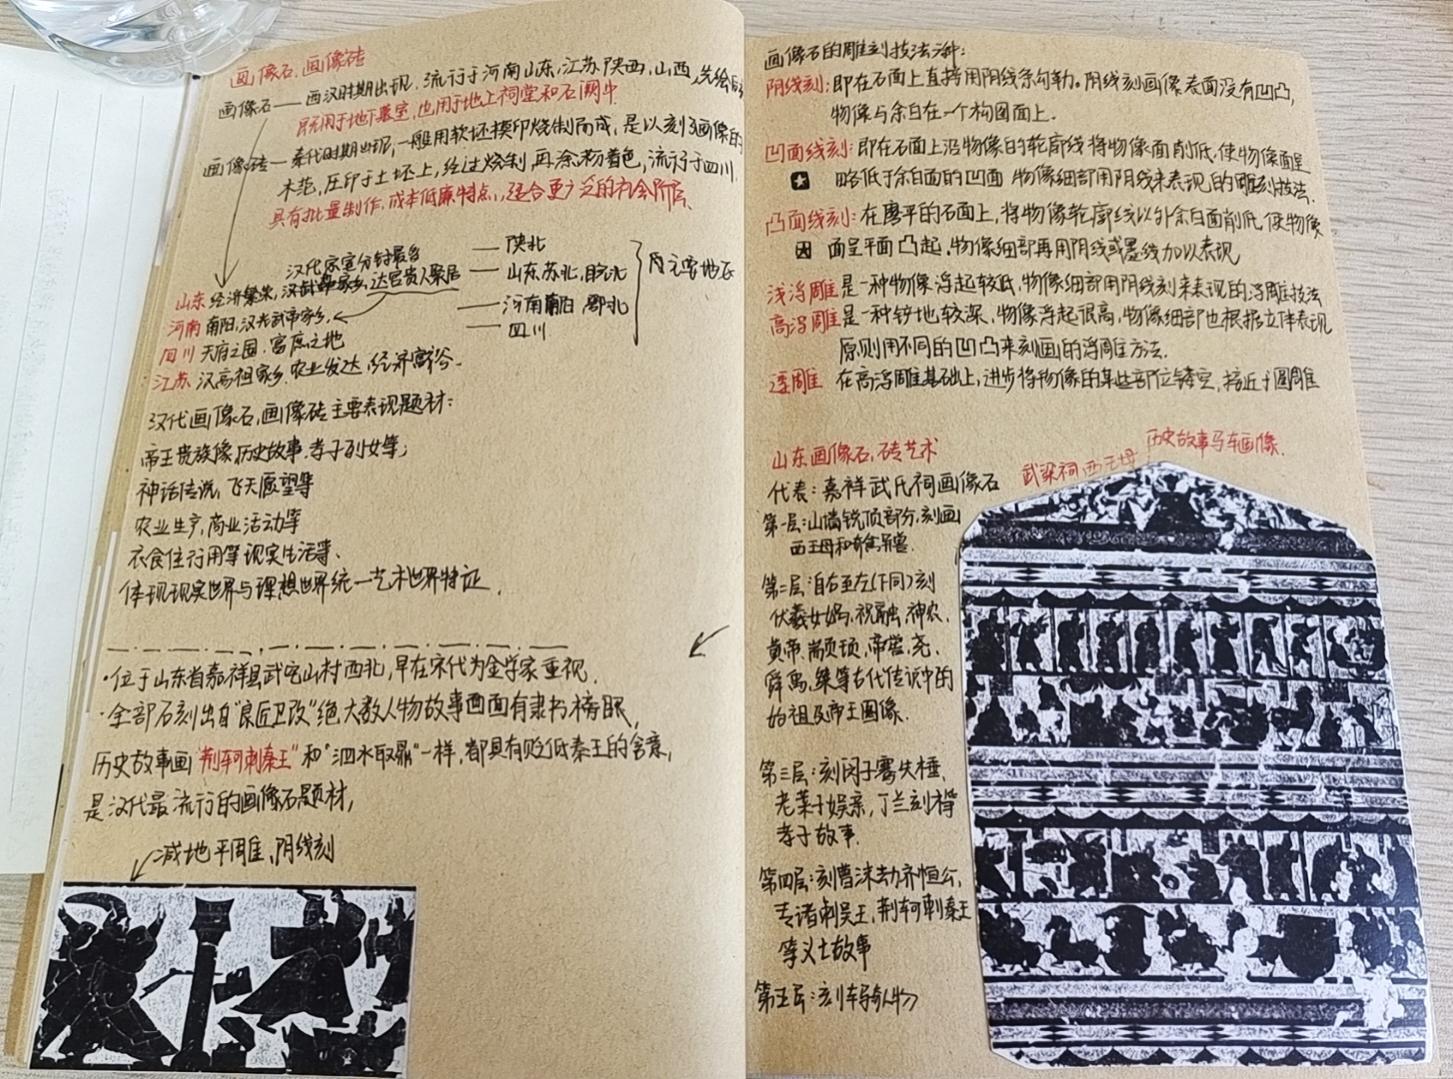 画像石、画像砖
画像石——西汉时期出现，流行于河南山东，江苏陕西，山西，先绘后
既用于地下墓室，也用于地上祠堂和石阙中
画像砖——秦代时期出现，一般用软坯模印烧制而成，是以刻了画像的
木范，压印于土坯上，经过烧制，再涂粉着色，流行于四川
具有批量制作，成本低廉特点，适合更广泛的社会阶层、
陕北
山东苏北，皖北
河南南阳 鄂北
四川
四元要地区
汉代宗室分封最多
山东 经济繁荣，汉武帝家乡，达官贵人聚居
河南 南阳，汉光武帝家乡，
四川 天府之国，富庶之地
江苏 汉高祖家乡，农业发达，经济富裕。
汉代画像石，画像砖主要表现题材：
帝王贵族像历史故事，孝子列女等；
神话传说，飞天愿望等
农业生产，商业活动等
衣食住行用等现实生活等、
体现现实世界与理想世界统一艺术世界特征、
·位于山东省嘉祥县武宅山村西北，早在宋代为金学家重视、
·全部石刻出自“良匠卫改”绝大数人物故事画面有隶书榜眼，
历史故事画“荆轲刺秦王”和“泗水取鼎”一样，都具有贬低秦王的含意，
是汉代最流行的画像石题材，
减地平周雕，阴线刻
画像石的雕刻技法六种：
阴线刻：即在石面上直接用阴线条勾勒。阴线刻画像表面没有凹凸，
物像与余白在一个构图面上.
凹面线刻：即在石面上沿物像的轮廓线将物像面削低，使物像面呈
略低于余白面的凹面 物像细部用阴线来表现的雕刻技法.
凸面线刻：在磨平的石面上，将物像轮廓线以外余白面削低，使物像
面呈平面凸起，物像细部再用阴线或墨线加以表现
浅浮雕是一种物像浮起较低，物像细部用阴线刻来表现的浮雕技法
高浮雕是一种铲地较深，物像浮起很高，物像细部也根据立体表现
原则用不同的凹凸来刻画的浮雕方法.
透雕 在高浮雕基础上，进步将物像的某些部位镂空，接近于圆雕
山东画像石，砖艺术
武梁祠西王母
历史故事马车画像.
代表：嘉祥武氏祠画像石
第一层：山墙锐顶部分，刻画
西王母和奇禽异兽.
第二层：自右至左(下同)刻
伏羲女娲，祝融，神农，
黄帝，颛顼，帝喾，尧，
舜禹，桀等古代传说中的
始祖及帝王图像.
第三层：刻闵子骞失棰、
老莱子娱亲，丁兰刻木等
孝子故事.
第四层：刻曹沫劫齐恒公，
专诸刺吴王，荆轲刺秦王
等义士故事
第五层：刻车骑人物